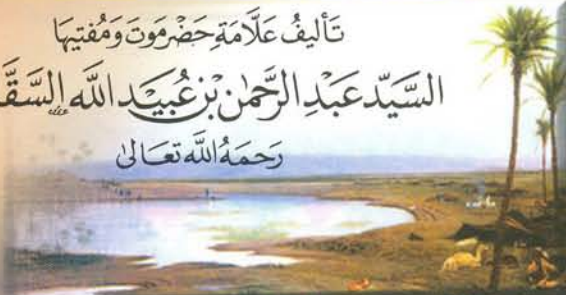 تَأليفُ عَلَّامَةِ حَضْرَمَوتَ وَمُفتِيهَا
السَيِّدِ عَبْدِ الرَّحمٰن بْن عُبَيْد الله
رَحمَهُ اللَّه تعَالىٰ